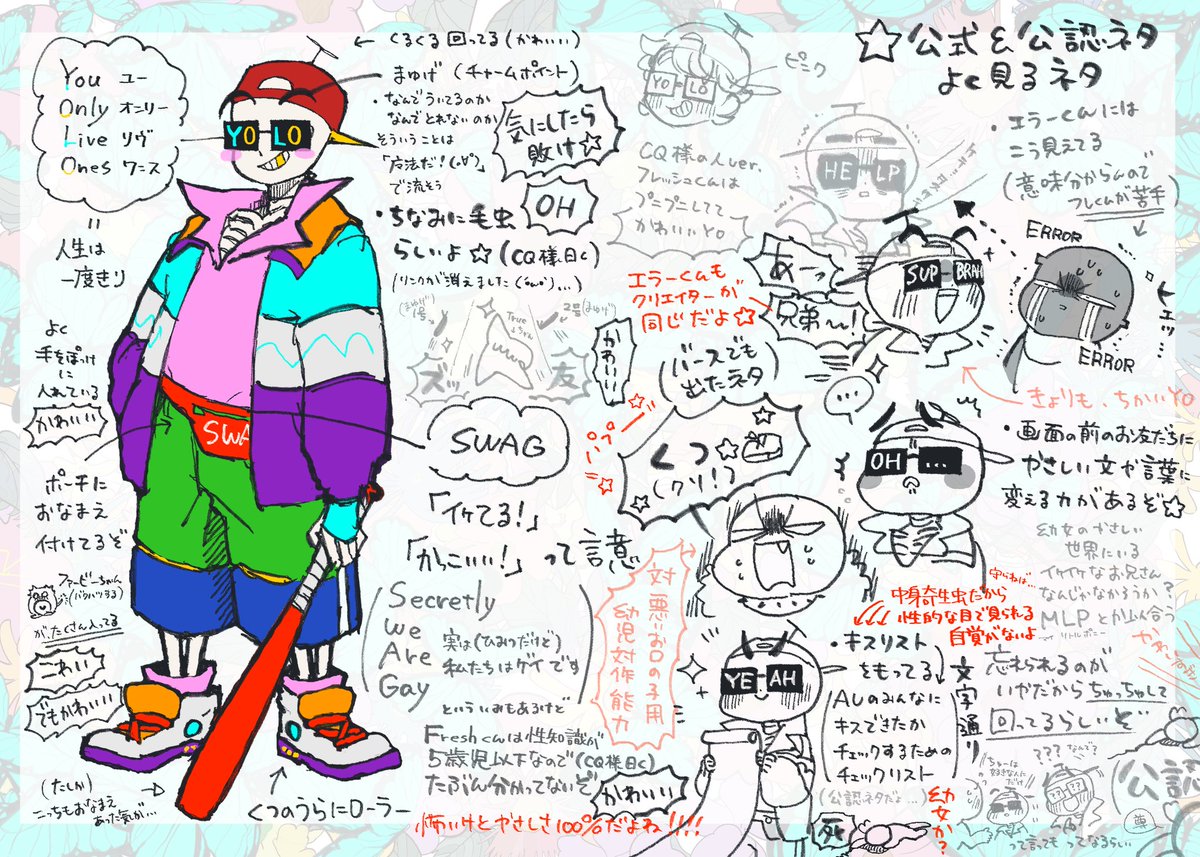 ☆公式&公認ネタ
よく見るネタ
You ユー
Only オンリー
Live リヴ
Ones ワニス
YOLO
||
人生は
一度きり
よく
手をぽっけ
に
入れている
かわいい
ポーチに
おなまえ
付けてるぞ
ファービーちゃん
がたくさん入ってる
こわい
でもかわいい
(たしか)
こっちもおなまえ
あった気が…
くつのうらにローラー
←くるくる回ってる(かわいい)
まゆげ (チャームポイント)
・なんでういてるのか
なんでとれないのか
そういうことは
で流そう
気にしたら
敗け☆
OH
・ちなみに毛虫
らしいよ☆(CQ様曰く)
(リンクが消えました
True
ズッ
友
SWAG
SWAG
「イケてる!」
「かっこいい!」って意
Secretly
We
Are
Gay
実は(ひみつだけど)
私たちはゲイです
といういみもあるけど
Freshくんは性知識が
5歳児以下なので(CQ様曰く)
たぶん分かってないぞ
かわいい
怖いけどやさしさ100%だよね!!!!
YOLO
ピンク
CQ様の人ver.
フレッシュくんは
プニプニしてて
かわいいYO
HELP
・エラーくんには
こう見えてる
(意味分からんので
フレくんが苦手)
エラーくんも
クリエイターが
同じだよ☆
かわいい
あーっ
兄弟〜!
SUP BRAH
ERROR
ERROR
ヒェッ
きょりも、ちかいYO
(バースでも
出たネタ)
くつ☆
(クソ!)
対悪いお口の子用
幼児対作能力
…
OH …
・画面の前のお友だちに
やさしい文や言葉に
変える力があるぞ☆
幼女のやさしい
世界にいる
イケイケなお兄さん
なんじゃなかろうか?
MLPとかム合う
リトルポニー
中身寄生虫だから
性的な目で見られる
自覚がないよ
守らねば…
YEAH
・キスリスト
をもってる
AUのみんなに
キスできたか
チェックするための
チェックリスト
(公認ネタだよ…)
文字通り
幼女か?
死
忘れられるのが
いやだからちゅっちゅして
回ってるらしいぞ
???
なんで?
ちゅーは
好きな人にだけ
??
公認
尊
って言ってもってなるらしい